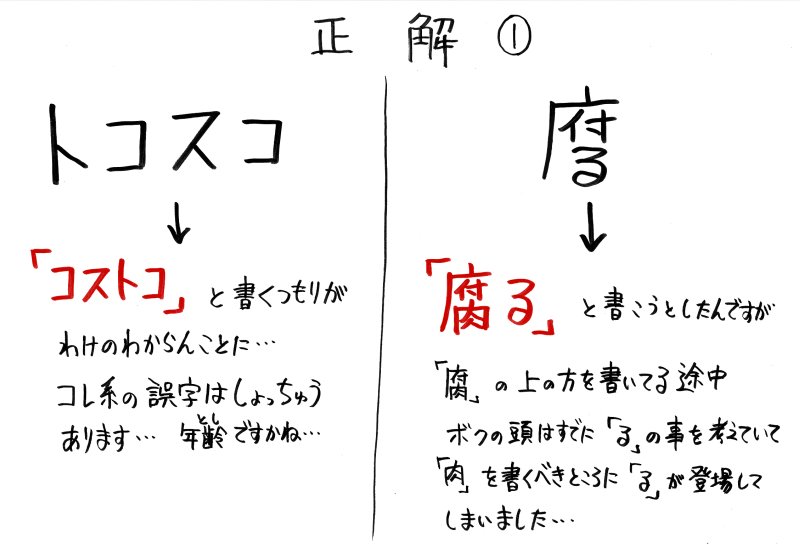 正解①
トコスコ
↓
「コストコ」と書くつもりが
わけのわからんことに…
コレ系の誤字はしょっちゅう
あります… 年齢ですかね…
とし
↓
「腐る」と書こうとしたんですが
「腐」の上の方を書いてる途中
ボクの頭はすでに「る」の事を考えていて
「肉」を書くべきところに「る」が登場して
しまいました…